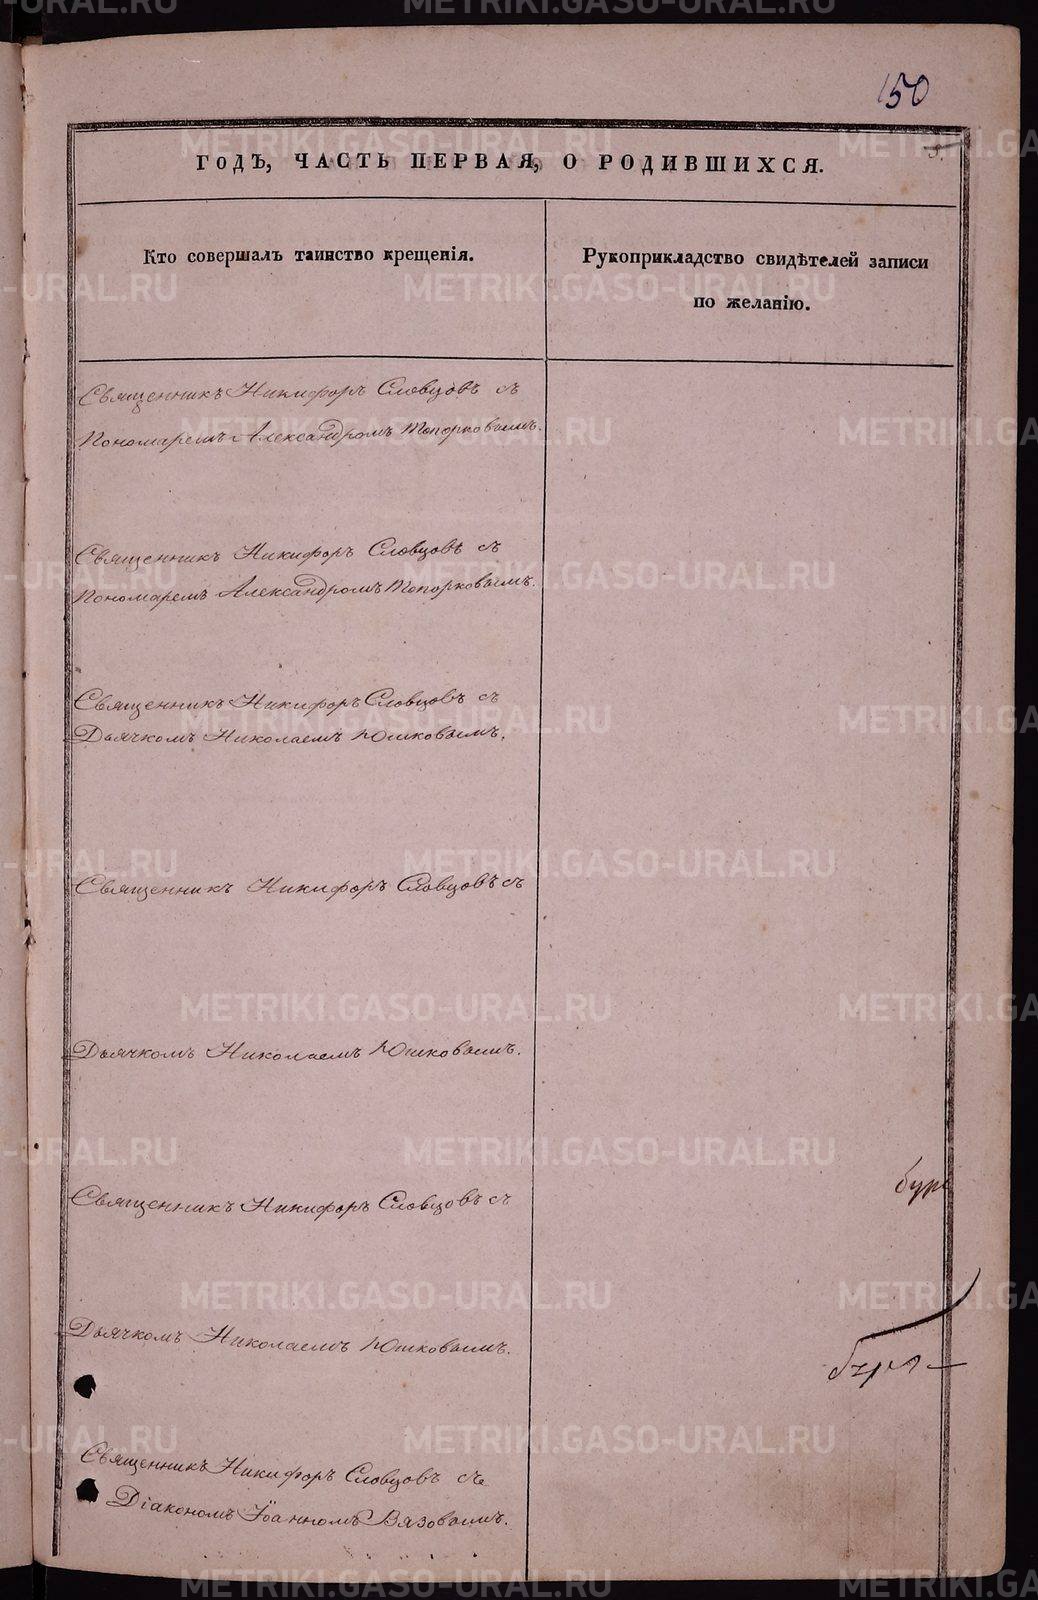 150
5.
ГОДЪ, ЧАСТЬ ПЕРВАЯ, О РОДИВШИХСЯ.
Кто совершалъ таинство крещенія.
Рукоприкладство свидѣтелей записи
по желанію.
Священникъ Никифоръ Словцовъ съ
Пономаремъ Александромъ Топорковымъ.
Священникъ Никифоръ Словцовъ съ
Пономаремъ Александромъ Топорковымъ.
Священникъ Никифоръ Словцовъ съ
Дьячкомъ Николаемъ Юшковымъ.
Священникъ Никифоръ Словцовъ съ
Дьячкомъ Николаемъ Юшковымъ.
Священникъ Никифоръ Словцовъ съ
Дьячкомъ Николаемъ Юшковымъ.
Священникъ Никифоръ Словцовъ съ
Діакономъ Іоанномъ Вязовымъ.
METRIKI.GASO-URAL.RU